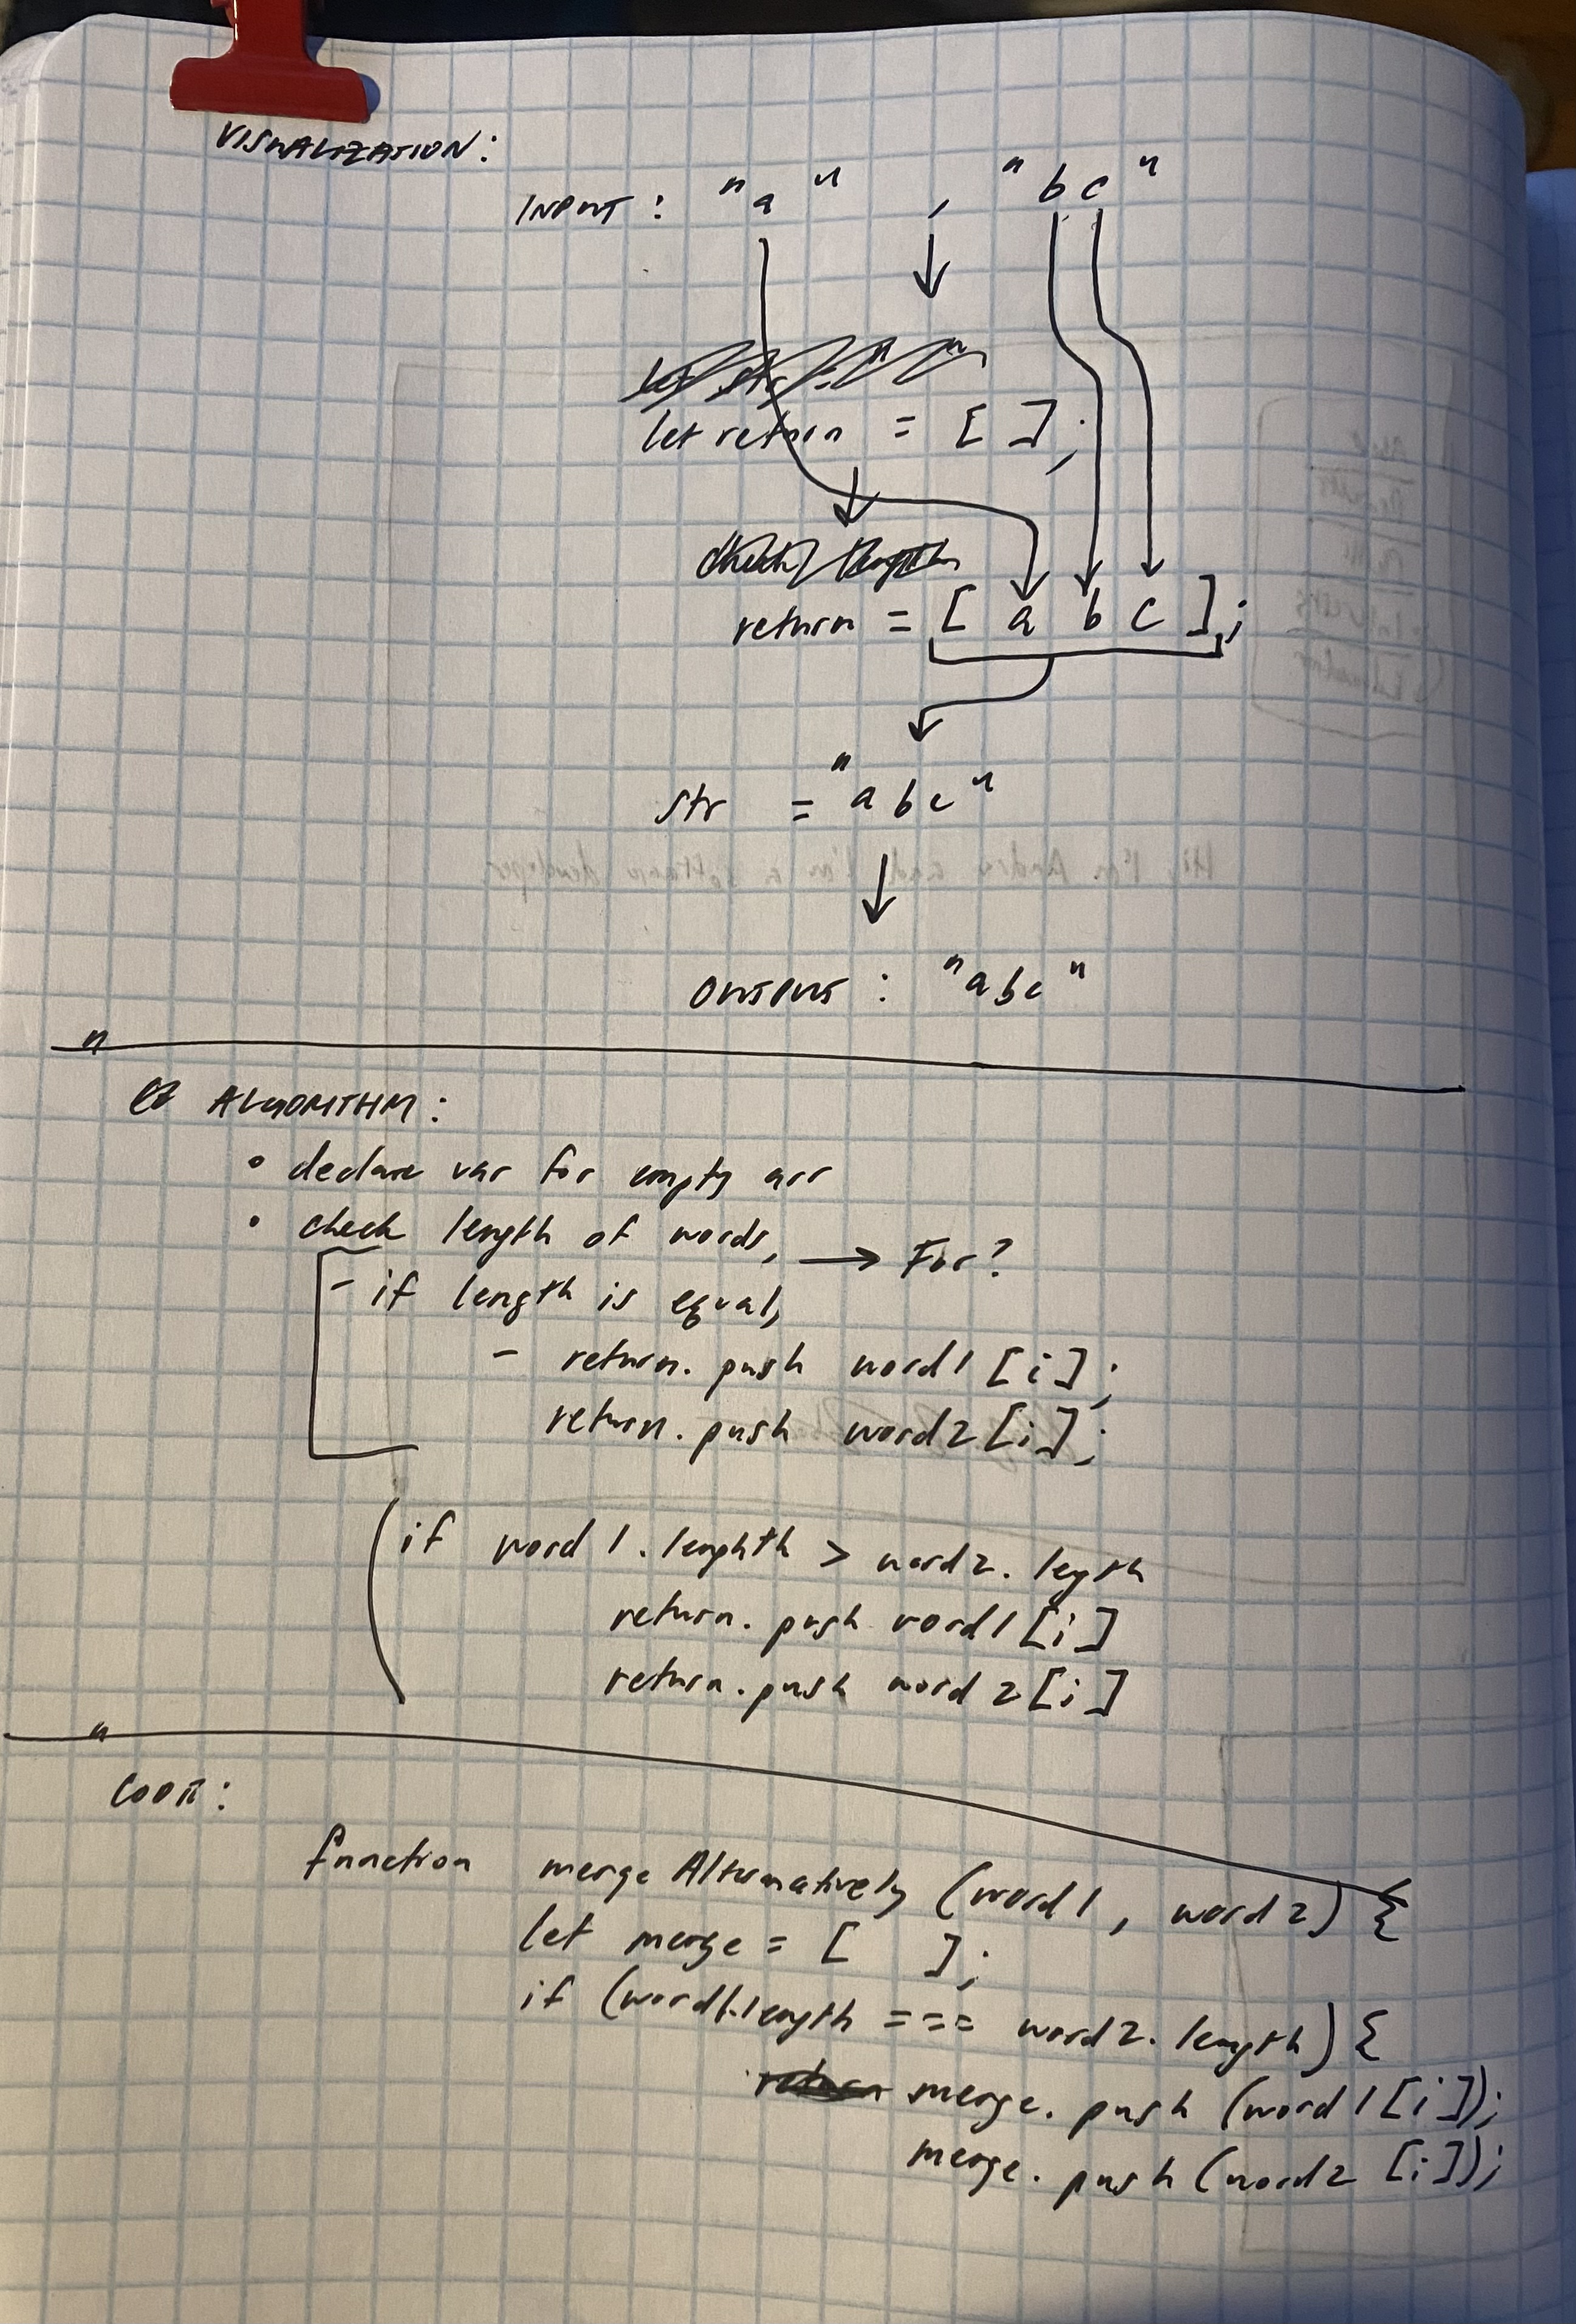 VISUALIZATION:
INPUT: "a" , "bc"
let str = " "
let return = [ ];
check length
return = [ a b c ];
str = "abc"
OUTPUT : "abc"
"
ALGORITHM:
• declare var for empty arr
• check length of words, → For?
- if length is equal,
- return. push word1 [i];
return. push word2 [i];
if word1. lenghth > word2. legth
return. push word1 [i]
return. push word2 [i]
"
CODE:
function mergeAlternatively (word1, word2) {
let merge = [ ];
if (word1.length === word2.length) {
return merge. push (word1 [i]);
merge. push (word2 [i]);